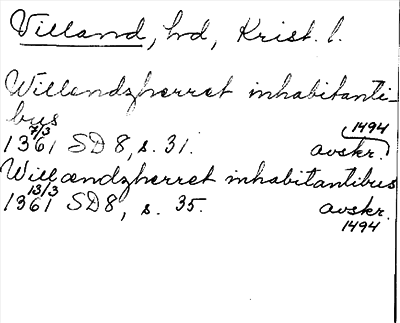 Villand, hd, Krist. l.
Willandzherret inhabitanti-
bus
7/3 1494
1361 SD 8, s. 31. avskr.
Willændzherret inhabitantibus
13/3
1361 SD8, s. 35. avskr.
1494